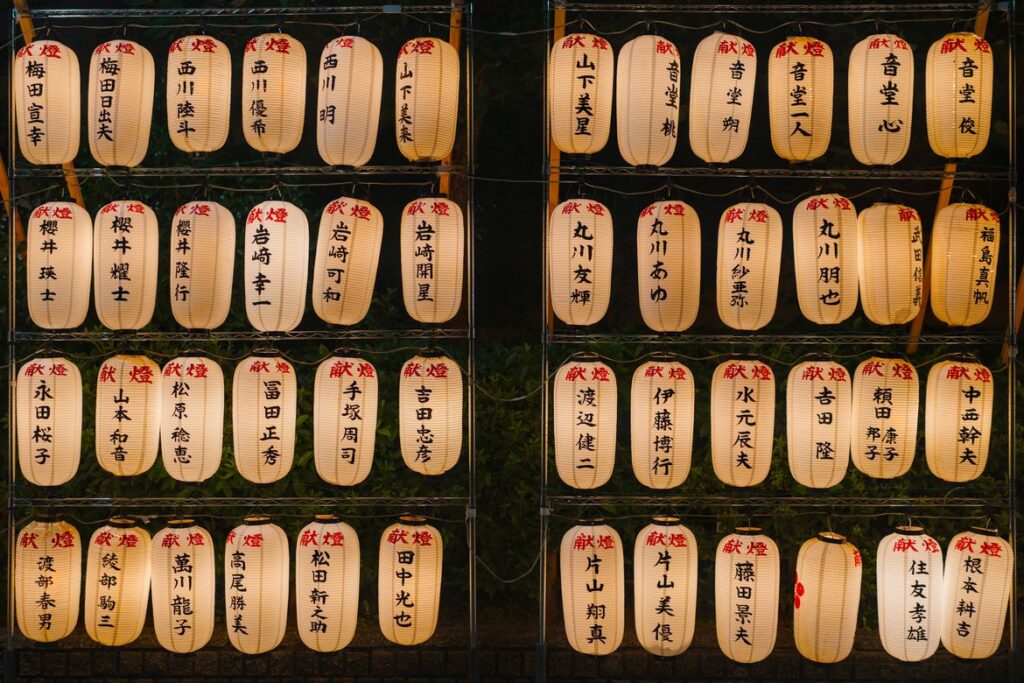 献燈 梅田宣幸
献燈 梅田日出夫
献燈 西川陸斗
献燈 西川優希
献燈 西川明
献燈 山下美来
献燈 山下美星
献燈 音堂桃
献燈 音堂朔
献燈 音堂一人
献燈 音堂心
献燈 音堂俊
献燈 櫻井瑛士
献燈 櫻井耀士
献燈 櫻井隆行
献燈 岩﨑幸一
献燈 岩﨑可和
献燈 岩﨑開星
献燈 丸川友輝
献燈 丸川あゆ
献燈 丸川紗亜弥
献燈 丸川朋也
献燈 武田信義
献燈 福島真帆
献燈 永田桜子
献燈 山本和音
献燈 松原稔恵
献燈 冨田正秀
献燈 手塚周司
献燈 吉田忠彦
献燈 渡辺健二
献燈 伊藤博行
献燈 水元辰夫
献燈 吉田隆
献燈 頼田康子邦子
献燈 中西幹夫
献燈 渡部春男
献燈 綾部駒三
献燈 萬川龍子
献燈 高尾勝美
献燈 松田新之助
献燈 田中光也
献燈 片山翔真
献燈 片山美優
献燈 藤田景夫
献燈 住友孝雄
献燈 根本耕吉